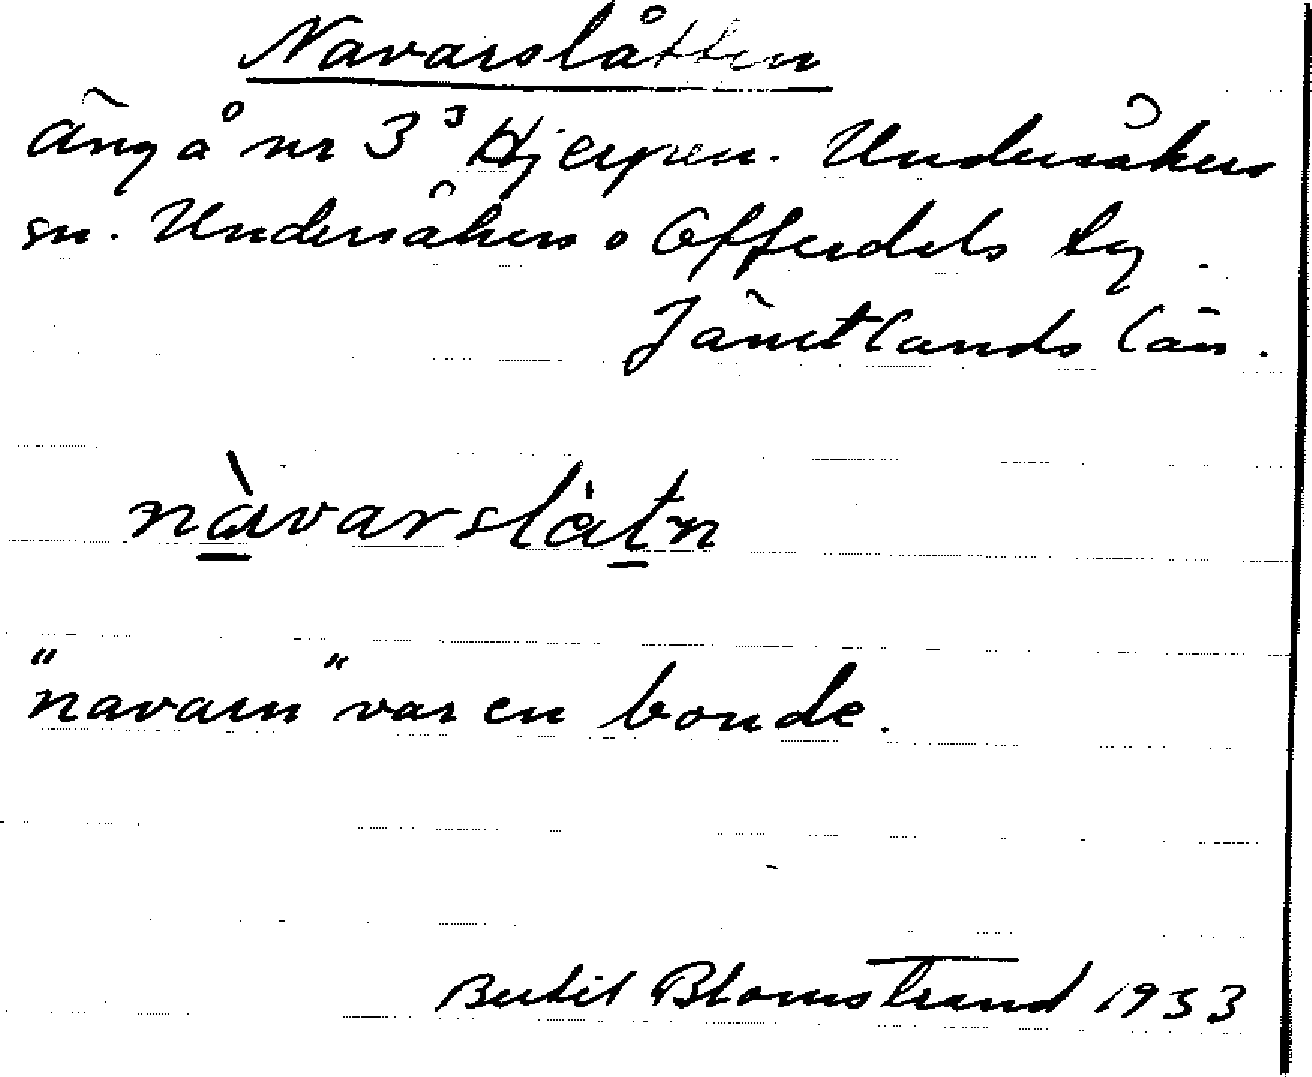 Navarslåtten
äng å nr 3³ Hjerpen. Undersåkers
sn. Undersåkers o Offerdals tg.
Jämtlands län.
nàvarslåtn
"navarn" var en bonde.
Bertil Blomstrand 1933